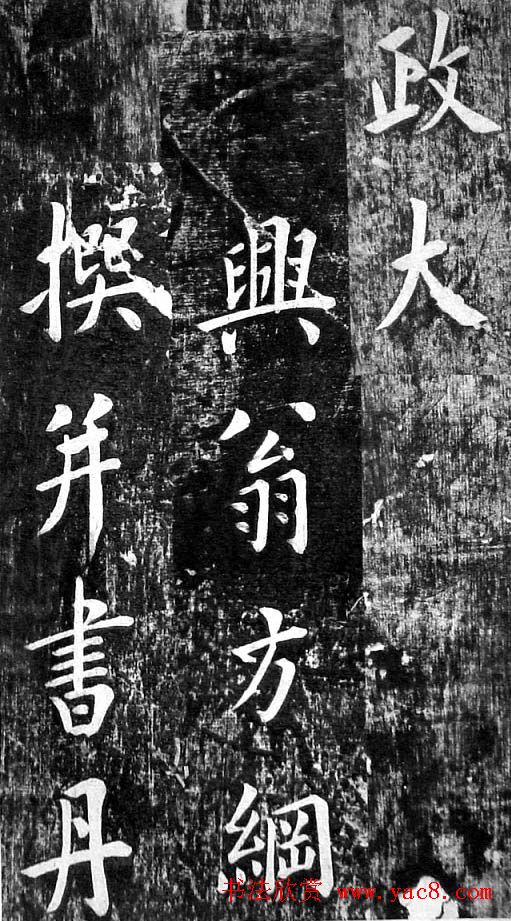 政大
興翁方綱
撰并書丹
书法欣赏 www.yac8.com